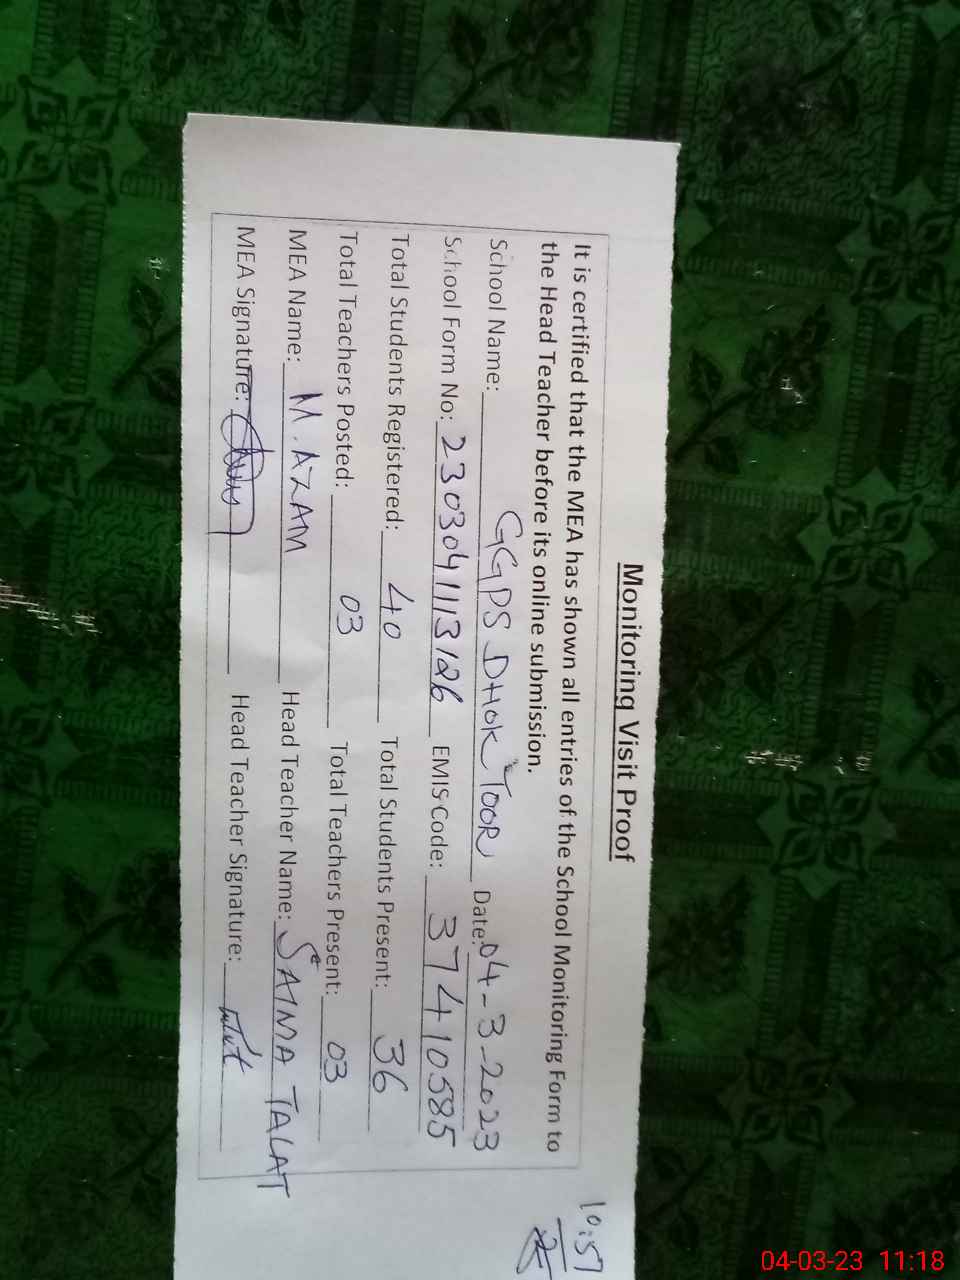 Monitoring Visit Proof
It is certified that the MEA has shown all entries of the School Monitoring Form to
the Head Teacher before its online submission.
School Name: GGPS DHOK TOOR Date: 04-3-2023
School Form No: 2303041113126 EMIS Code: 37410585
Total Students Registered: 40 Total Students Present: 36
Total Teachers Posted: 03 Total Teachers Present: 03
MEA Name: M. AZAM Head Teacher Name: SAIMA TALAT
MEA Signature: Head Teacher Signature:
10:57
04-03-23 11:18